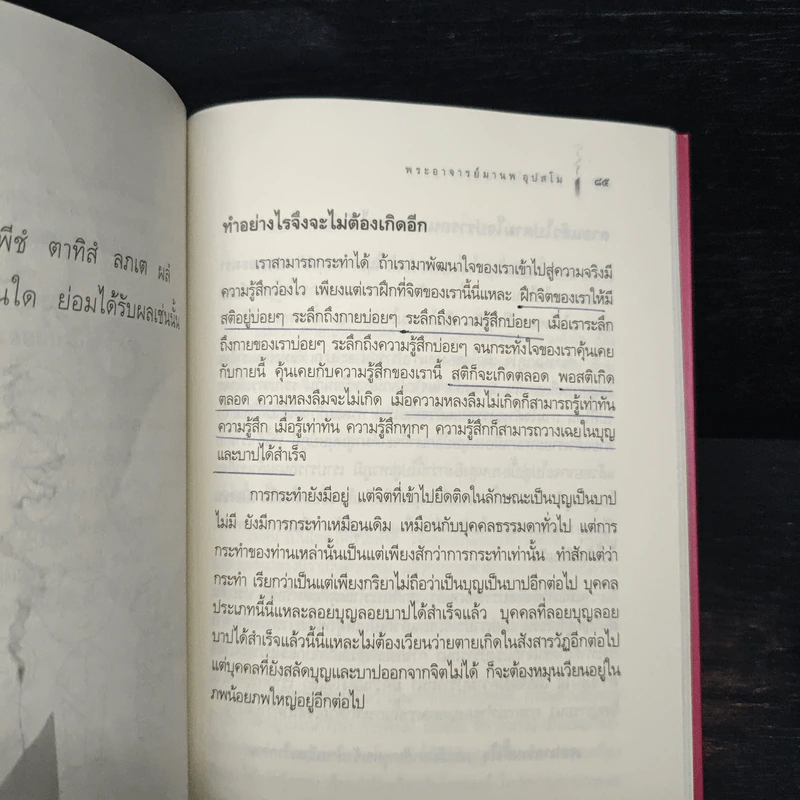 พีชํ ตาทิสํ ลภเต ผลํ
นใด ย่อมได้รับผลเช่นนั้น
พระอาจารย์มานพ อุปสโม
๘๕
ทำอย่างไรจึงจะไม่ต้องเกิดอีก
เราสามารถกระทำได้ ถ้าเรามาพัฒนาใจของเราเข้าไปสู่ความจริงมี
ความรู้สึกว่องไว เพียงแต่เราฝึกที่จิตของเรานี้นี่แหละ ฝึกจิตของเราให้มี
สติอยู่บ่อยๆ ระลึกถึงกายบ่อยๆ ระลึกถึงความรู้สึกบ่อยๆ เมื่อเราระลึก
ถึงกายของเราบ่อยๆ ระลึกถึงความรู้สึกบ่อยๆ จนกระทั่งใจของเราคุ้นเคย
กับกายนี้ คุ้นเคยกับความรู้สึกของเรานี้ สติก็จะเกิดตลอด พอสติเกิด
ตลอด ความหลงลืมจะไม่เกิด เมื่อความหลงลืมไม่เกิดก็สามารถรู้เท่าทัน
ความรู้สึก เมื่อรู้เท่าทัน ความรู้สึกทุกๆ ความรู้สึกก็สามารถวางเฉยในบุญ
และบาปได้สำเร็จ
การกระทำยังมีอยู่ แต่จิตที่เข้าไปยึดติดในลักษณะเป็นบุญเป็นบาป
ไม่มี ยังมีการกระทำเหมือนเดิม เหมือนกับบุคคลธรรมดาทั่วไป แต่การ
กระทำของท่านเหล่านั้นเป็นแต่เพียงสักว่าการกระทำเท่านั้น ทำสักแต่ว่า
กระทำ เรียกว่าเป็นแต่เพียงกริยาไม่ถือว่าเป็นบุญเป็นบาปอีกต่อไป บุคคล
ประเภทนี้นี่แหละลอยบุญลอยบาปได้สำเร็จแล้ว บุคคลที่ลอยบุญลอย
บาปได้สำเร็จแล้วนี้นี่แหละไม่ต้องเวียนว่ายตายเกิดในสังสารวัฏอีกต่อไป
แต่บุคคลที่ยังสลัดบุญและบาปออกจากจิตไม่ได้ ก็จะต้องหมุนเวียนอยู่ใน
ภพน้อยภพใหญ่อยู่อีกต่อไป